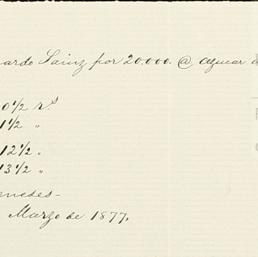 ardo Sainz por 20.000 @ azucar d
0 1/2 rs
1 1/2 "
12 1/2 "
13 1/2 "
Marzo de 1877,